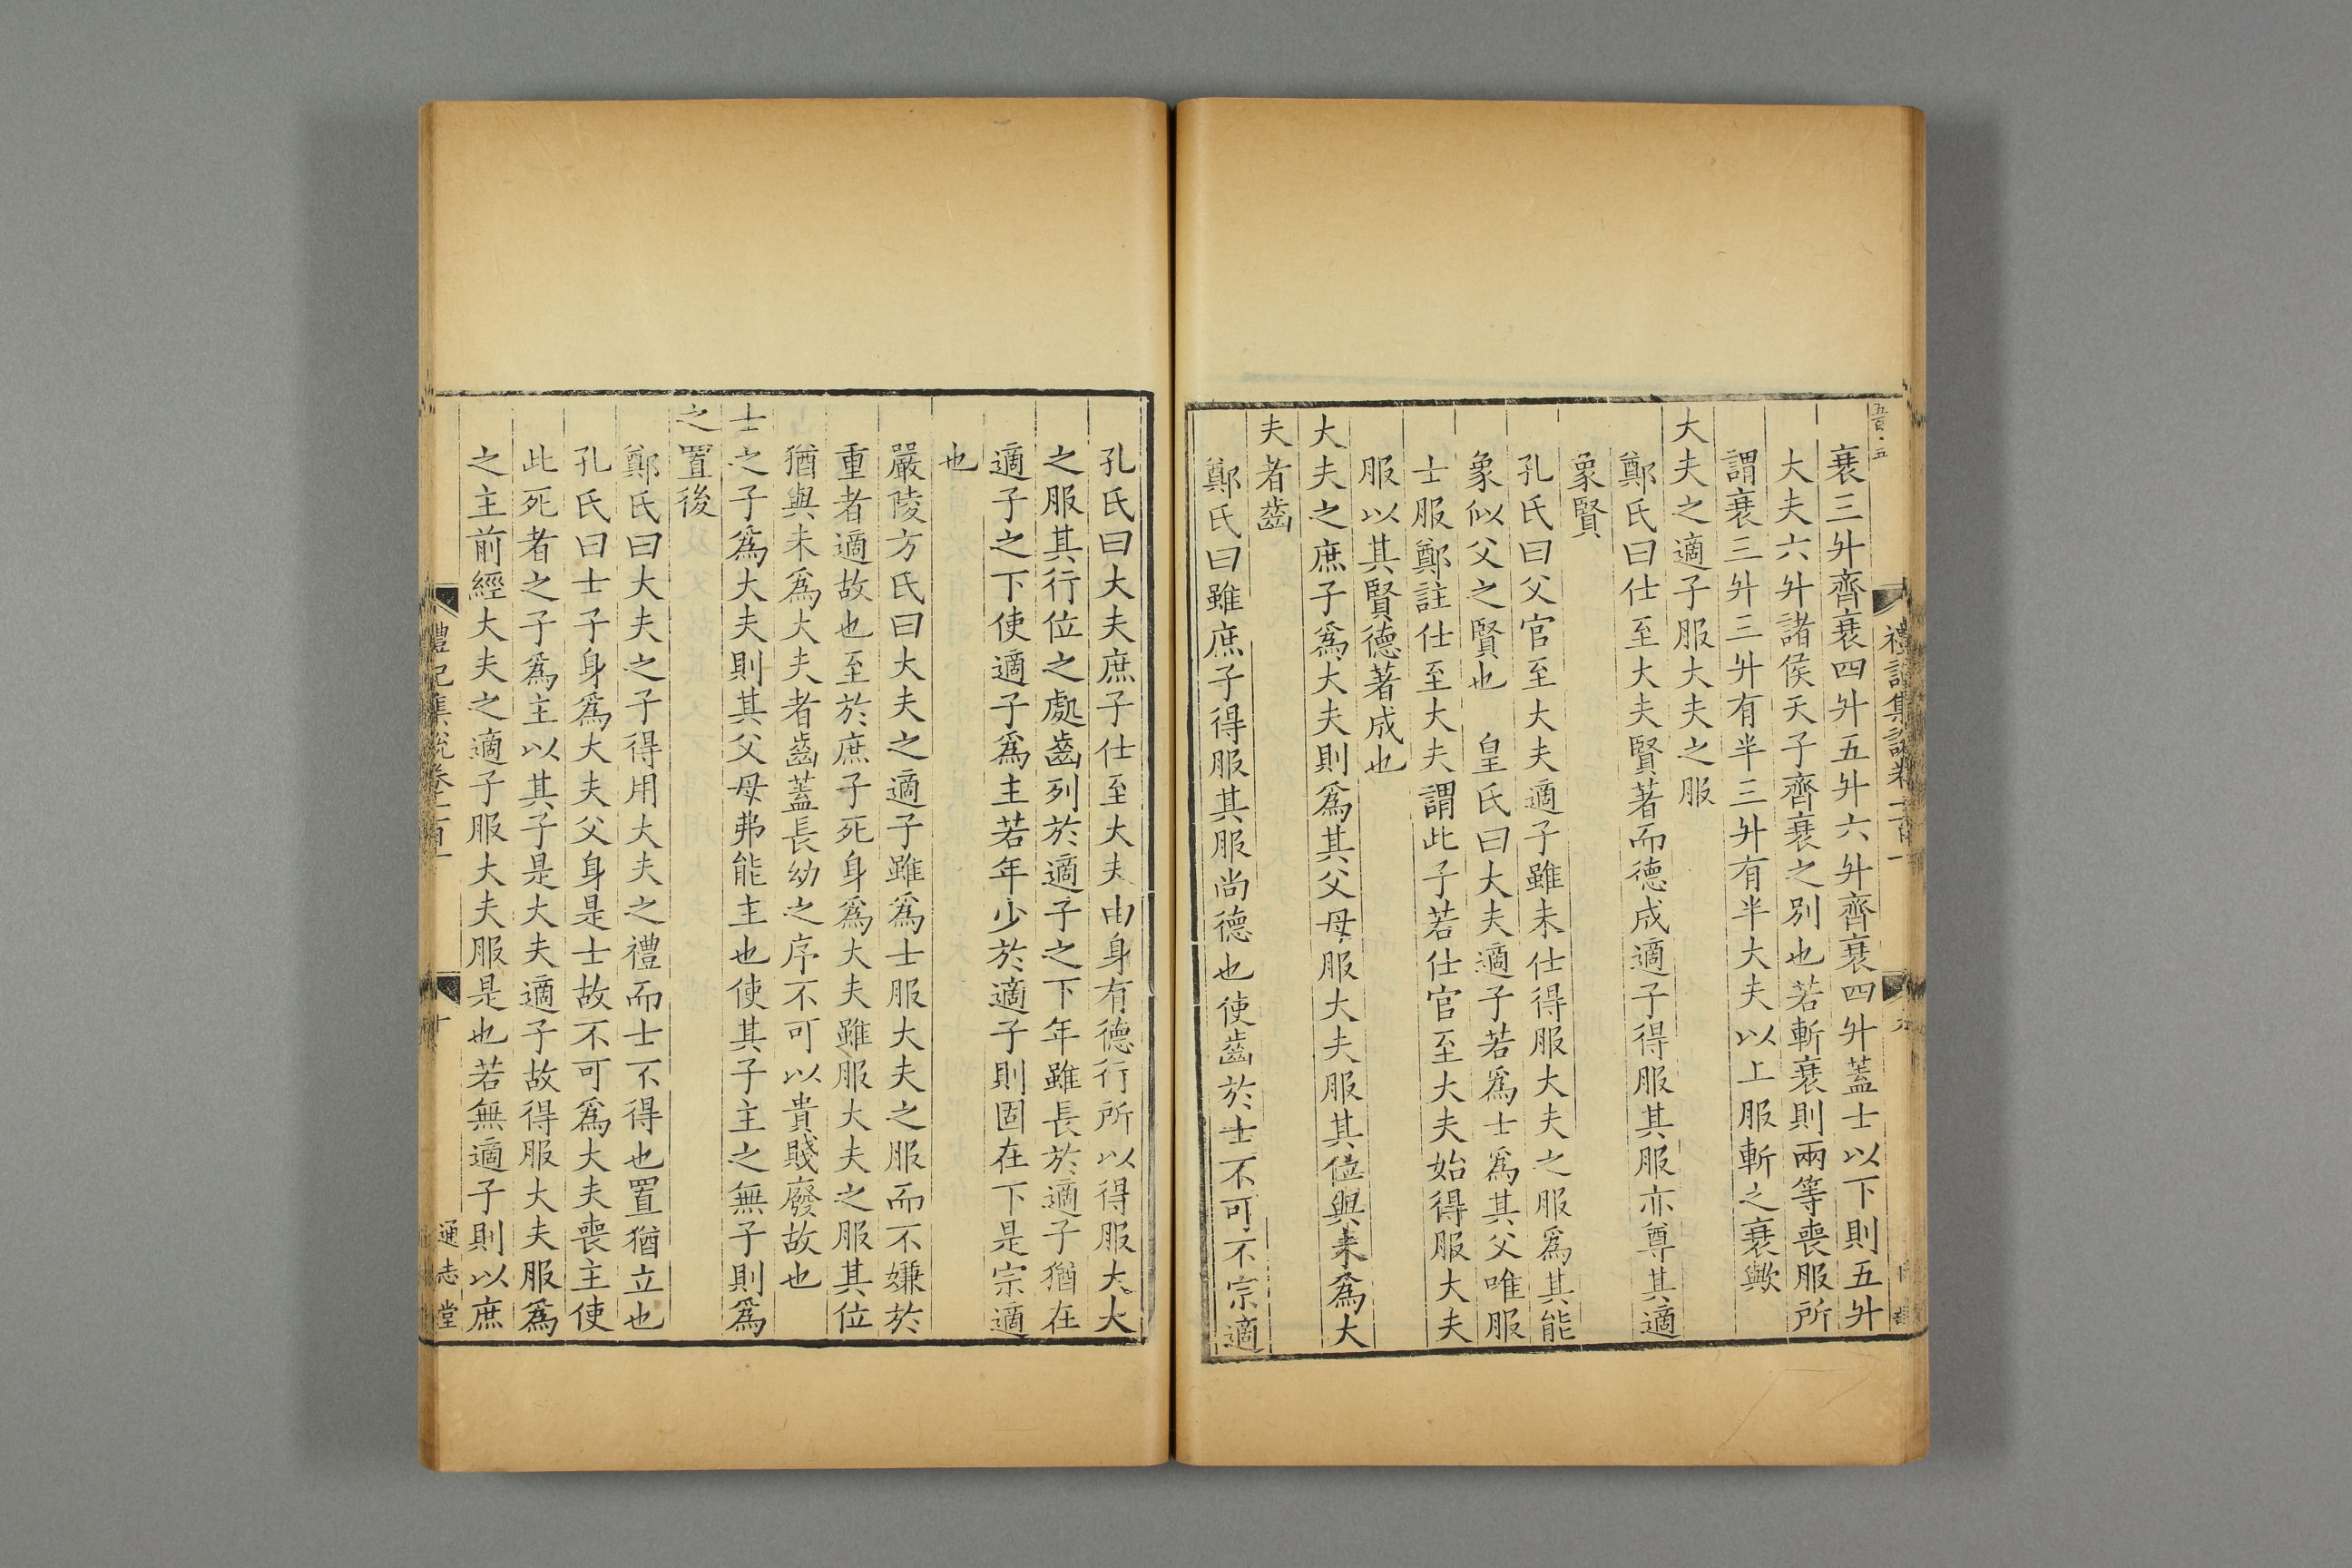 衰三升齊衰四升五升六升齊衰四升蓋士以下則五升
大夫六升諸侯天子齊衰之別也若斬衰則兩等喪服所
謂衰三升三升有半三升有半大夫以上服斬之衰歟
大夫之適子服大夫之服
鄭氏曰仕至大夫賢著而德成適子得服其服亦尊其適
象賢
孔氏曰父官至大夫適子雖未仕得服大夫之服爲其能
象似父之賢也　皇氏曰大夫適子若爲士爲其父唯服
士服鄭註仕至大夫謂此子若仕官至大夫始得服大夫
服以其賢德著成也
大夫之庶子爲大夫則爲其父母服大夫服其位與未爲大
夫者齒
鄭氏曰雖庶子得服其服尚德也使齒於士不可不宗適
孔氏曰大夫庶子仕至大夫由身有德行所以得服大大
之服其行位之處齒列於適子之下年雖長於適子猶在
適子之下使適子爲主若年少於適子則固在下是宗適
也
嚴陵方氏曰大夫之適子雖爲士服大夫之服而不嫌於
重者適故也至於庶子死身爲大夫雖服大夫之服其位
猶與未爲大夫者齒蓋長幼之序不可以貴賤廢故也
士之子爲大夫則其父母弗能主也使其子主之無子則爲
之置後
鄭氏曰大夫之子得用大夫之禮而士不得也置猶立也
孔氏曰士子身爲大夫父身是士故不可爲大夫喪主使
此死者之子爲主以其子是大夫適子故得服大夫服爲
之主前經大夫之適子服大夫服是也若無適子則以庶
禮記集說卷一百一
十
通志堂